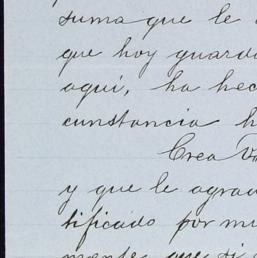 suma que le
que hoy guard
aquí, ha hec
cunstancia h
Crea V
y que le agrad
tificado por mi
mente que si